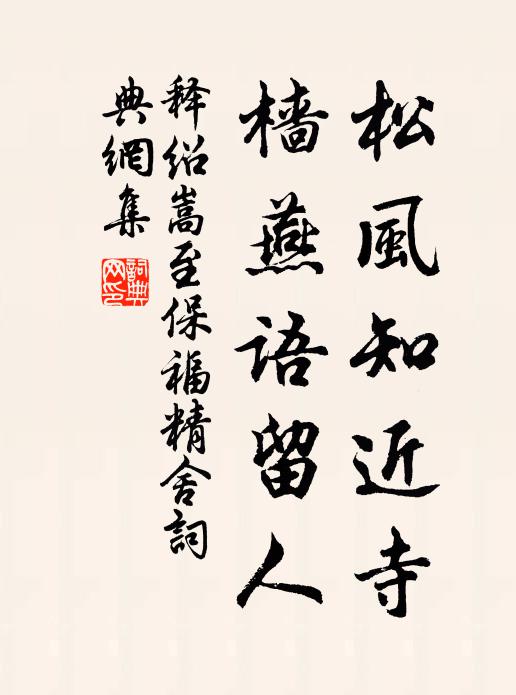 松風知近寺
檣燕語留人
释绍嵩至保福精舍詞
典網集
詞典
网印